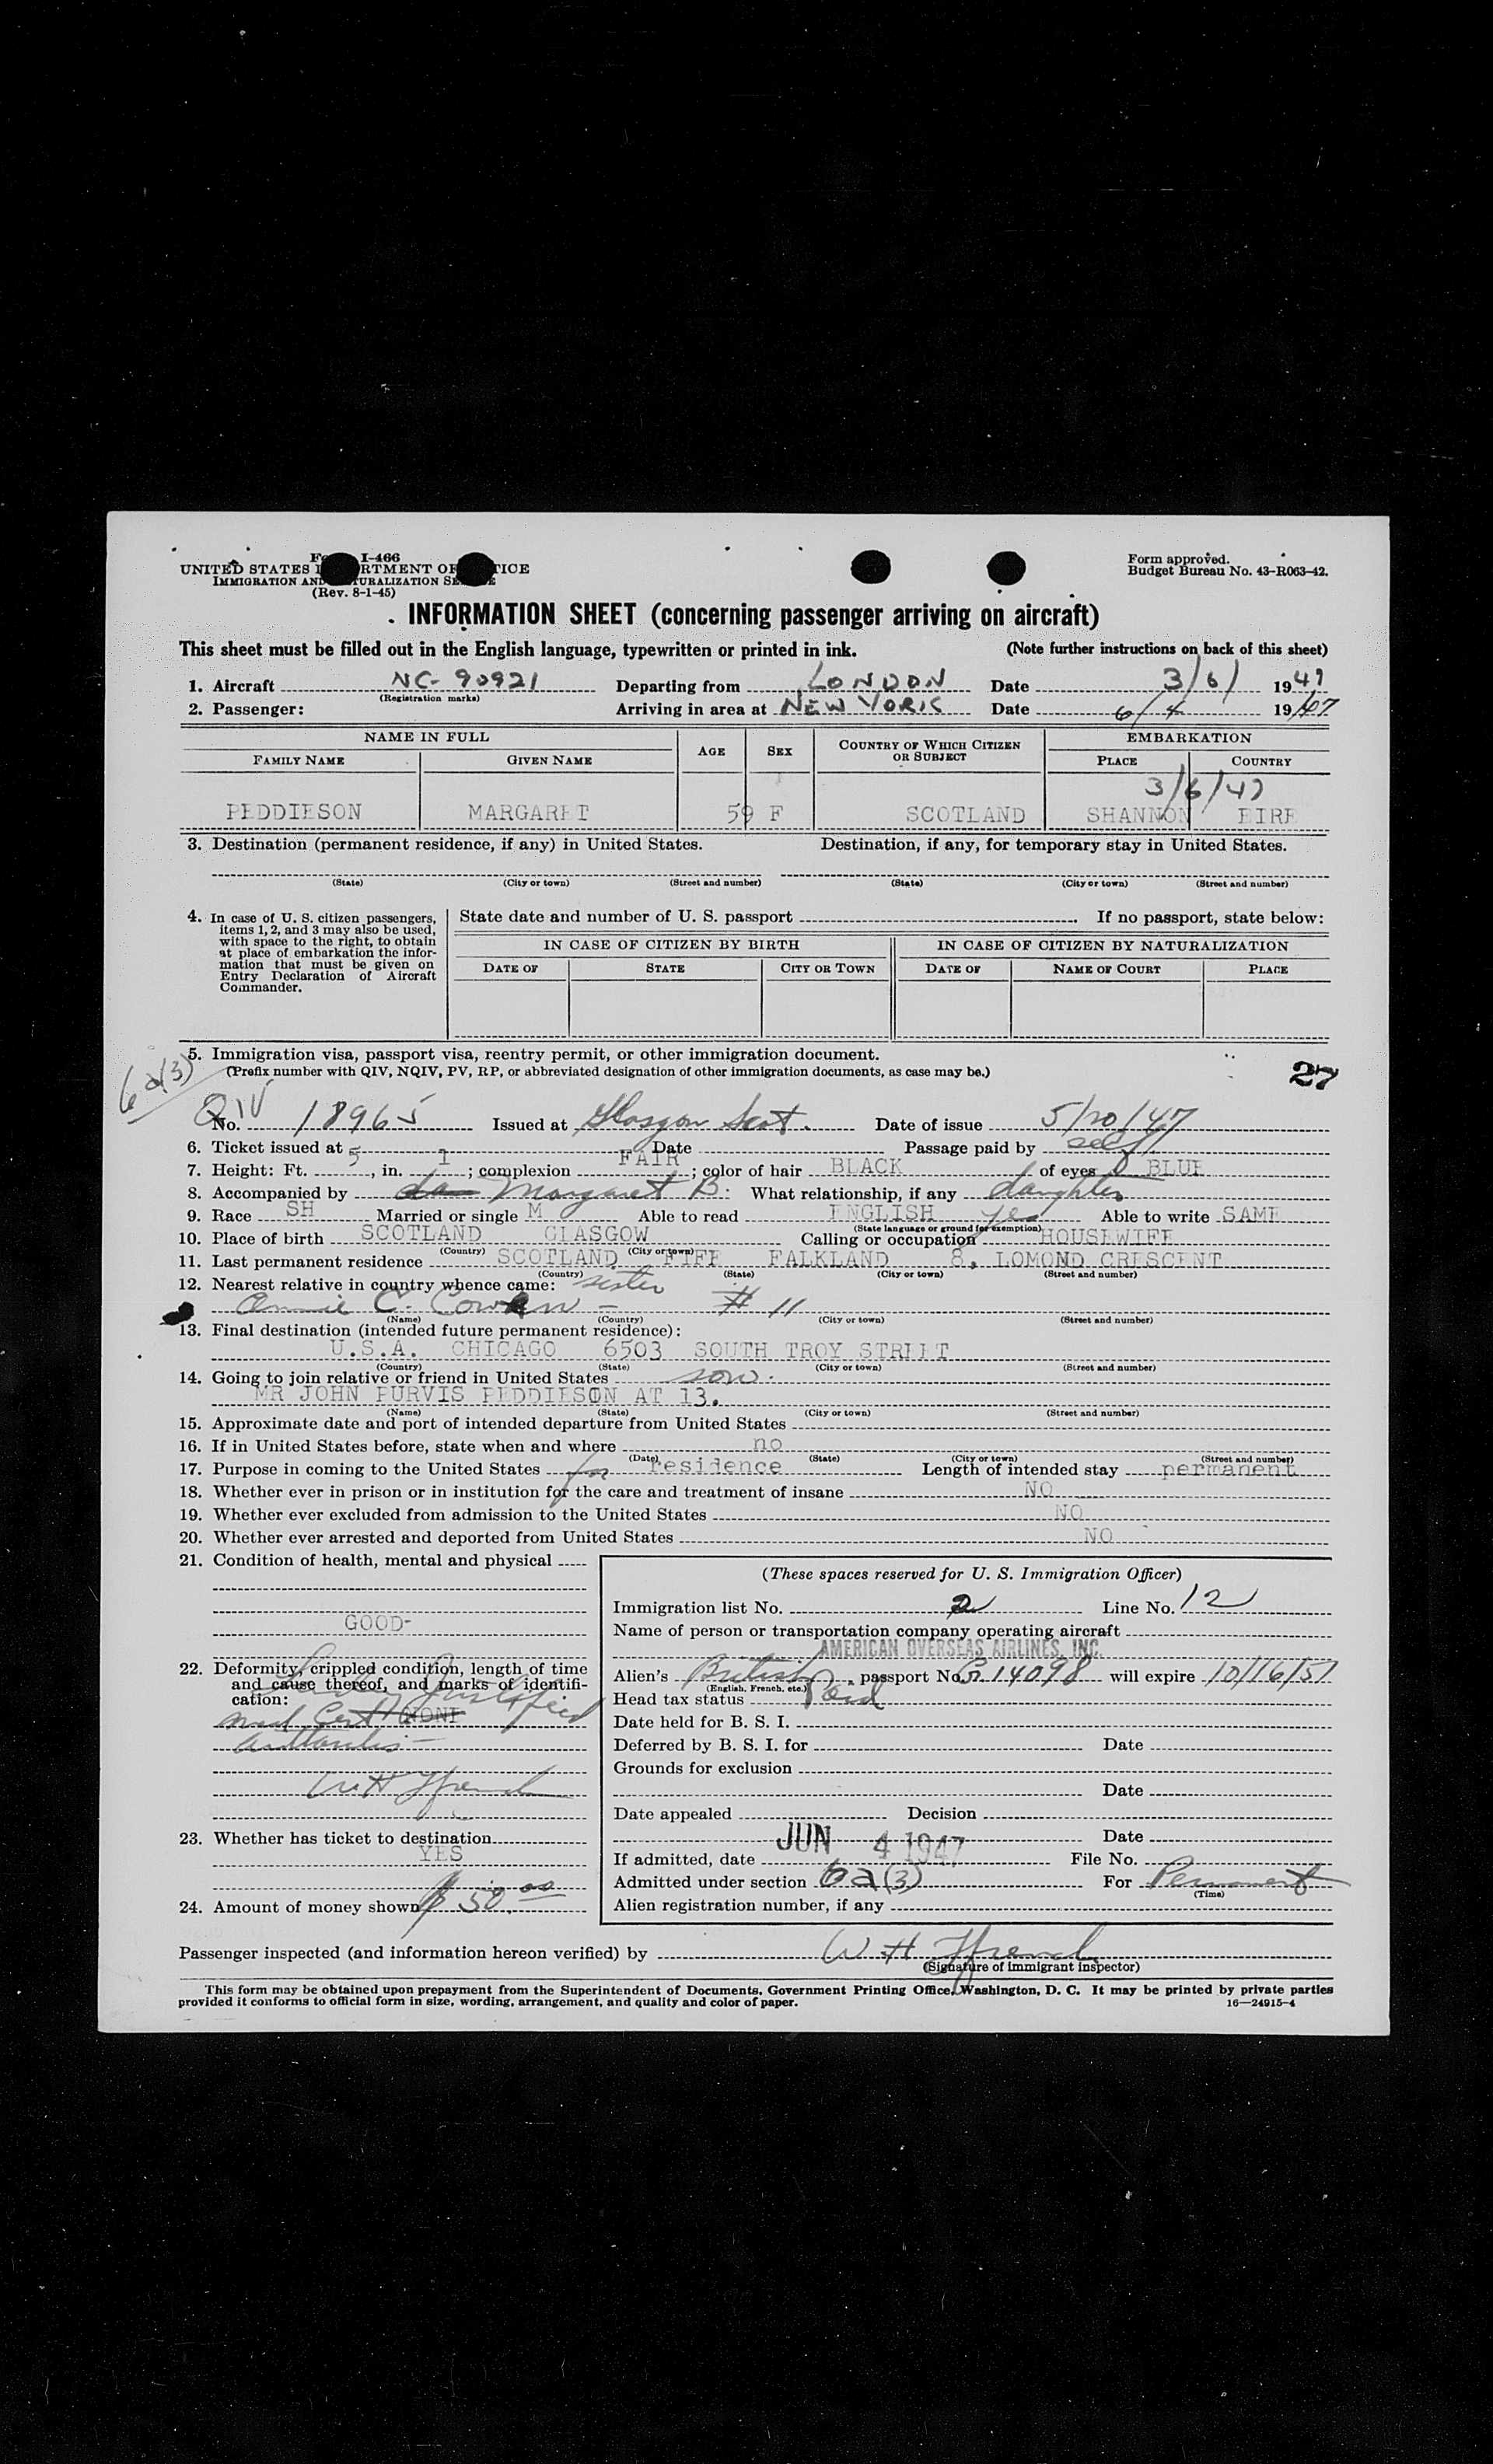 Form I-466
UNITED STATES DEPARTMENT OF JUSTICE
IMMIGRATION AND NATURALIZATION SERVICE
(Rev. 8-1-45)
Form approved.
Budget Bureau No. 43-R063-42.
INFORMATION SHEET (concerning passenger arriving on aircraft)
This sheet must be filled out in the English language, typewritten or printed in ink. (Note further instructions on back of this sheet)
1. Aircraft NC-90921 Departing from LONDON Date 3/6/ 1947
(Registration marks)
2. Passenger: Arriving in area at NEW YORK Date 6/4 1947
NAME IN FULL AGE SEX COUNTRY OF WHICH CITIZEN OR SUBJECT EMBARKATION
FAMILY NAME GIVEN NAME PLACE COUNTRY
3/6/47
PEDDIESON MARGARET 59 F SCOTLAND SHANNON EIRE
3. Destination (permanent residence, if any) in United States. Destination, if any, for temporary stay in United States.
(State) (City or town) (Street and number) (State) (City or town) (Street and number)
4. In case of U. S. citizen passengers, items 1, 2, and 3 may also be used, with space to the right, to obtain at place of embarkation the information that must be given on Entry Declaration of Aircraft Commander.
State date and number of U. S. passport . If no passport, state below:
IN CASE OF CITIZEN BY BIRTH IN CASE OF CITIZEN BY NATURALIZATION
DATE OF STATE CITY OR TOWN DATE OF NAME OF COURT PLACE
6a(3)
5. Immigration visa, passport visa, reentry permit, or other immigration document.
(Prefix number with QIV, NQIV, PV, RP, or abbreviated designation of other immigration documents, as case may be.)
27
QIV
No. 18965 Issued at Glasgow Scot. Date of issue 5/20/47
6. Ticket issued at Date Passage paid by self
7. Height: Ft. 5, in. 1; complexion FAIR; color of hair BLACK of eyes BLUE
8. Accompanied by da Margaret B. What relationship, if any daughter
9. Race SH Married or single M Able to read ENGLISH yes Able to write SAME
(State language or ground for exemption)
10. Place of birth SCOTLAND GLASGOW Calling or occupation HOUSEWIFE
(Country) (City or town)
11. Last permanent residence SCOTLAND FIFE FALKLAND 8, LOMOND CRESCENT
(Country) (State) (City or town) (Street and number)
12. Nearest relative in country whence came: sister
Annie C. Cowan - # 11
(Name) (Country) (City or town) (Street and number)
13. Final destination (intended future permanent residence):
U.S.A. CHICAGO 6503 SOUTH TROY STREET
(Country) (State) (City or town) (Street and number)
14. Going to join relative or friend in United States son.
MR JOHN PURVIS PEDDIESON AT 13.
(Name) (State) (City or town) (Street and number)
15. Approximate date and port of intended departure from United States
16. If in United States before, state when and where no
(Date) (State) (City or town) (Street and number)
17. Purpose in coming to the United States for residence Length of intended stay permanent
18. Whether ever in prison or in institution for the care and treatment of insane NO
19. Whether ever excluded from admission to the United States NO
20. Whether ever arrested and deported from United States NO
21. Condition of health, mental and physical
GOOD-
22. Deformity, crippled condition, length of time and cause thereof, and marks of identification:
Med Cert NONE
Arthritis -
W H Ffrench
23. Whether has ticket to destination
YES
24. Amount of money shown $ 50.00
(These spaces reserved for U. S. Immigration Officer)
Immigration list No. 2 Line No. 12
Name of person or transportation company operating aircraft
AMERICAN OVERSEAS AIRLINES, INC.
Alien's British passport No. 14098 will expire 10/16/51
(English, French, etc.)
Head tax status Paid
Date held for B. S. I.
Deferred by B. S. I. for Date
Grounds for exclusion
Date
Date appealed Decision
Date
If admitted, date JUN 4 1947 File No.
Admitted under section 6a(3) For Permanent
(Time)
Alien registration number, if any
Passenger inspected (and information hereon verified) by W H Ffrench
(Signature of immigrant inspector)
This form may be obtained upon prepayment from the Superintendent of Documents, Government Printing Office, Washington, D. C. It may be printed by private parties
provided it conforms to official form in size, wording, arrangement, and quality and color of paper. 16—24915-4